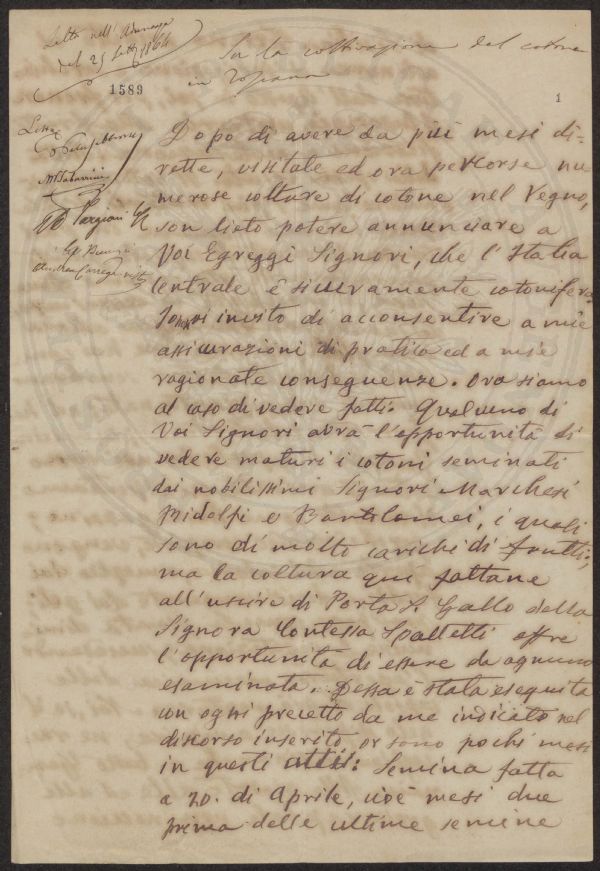 Letta nell'Adunanza
del 25 Sett. 1864
Su la coltivazione del cotone
in Toscana
1589
1
Dopo di avere da più mesi di-
rette, visitate ed ora percorse nu
merose colture di cotone nel Regno,
son lieto potere annunciare a
Voi Egreggi Signori, che l'Italia
Centrale è sicuramente cotonifera
invito di acconsentire a mie
assicurazioni di pratica ed a mie
ragionate conseguenze. Ora siamo
al caso di vedere fatti. Qualcuno di
Voi Signori avrà l'opportunità di
vedere maturi i cotoni seminati
dai nobilissimi Signori Marchesi
Ridolfi e Bartolomei, i quali
sono di molto carichi di frutti;
ma la coltura qui fattane
all'uscire di Porta S. Gallo della
Signora Contessa Spalletti offre
l'opportunità di essere da ognuno
esaminata. Dessa è stata eseguita
con ogni precetto da me indicato nel
discorso inserito, or sono pochi mesi
in questi atti: Semina fatta
a 20. di Aprile, cioè mesi due
prima delle ultime semine